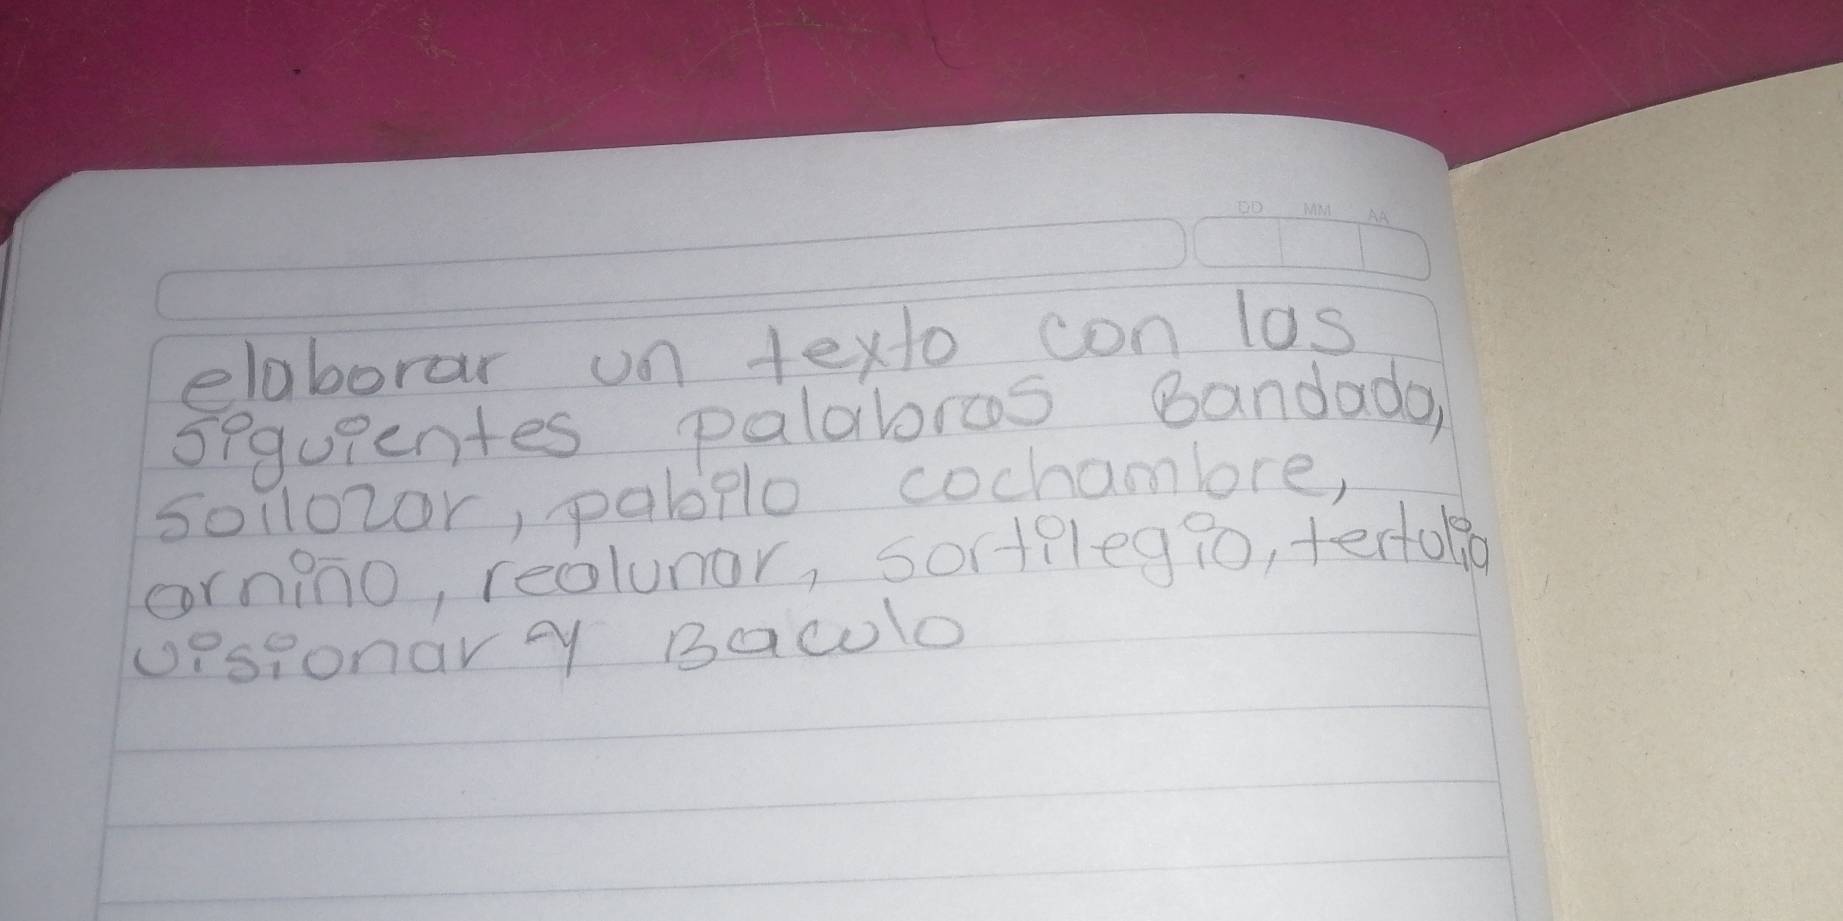 DD MM AA
elaborar un texto con las
siguientes palabras Bandada,
sollozar, pabilo cochambre,
arniño, realunar, sortilegio, tertolia
visionar y Baculo